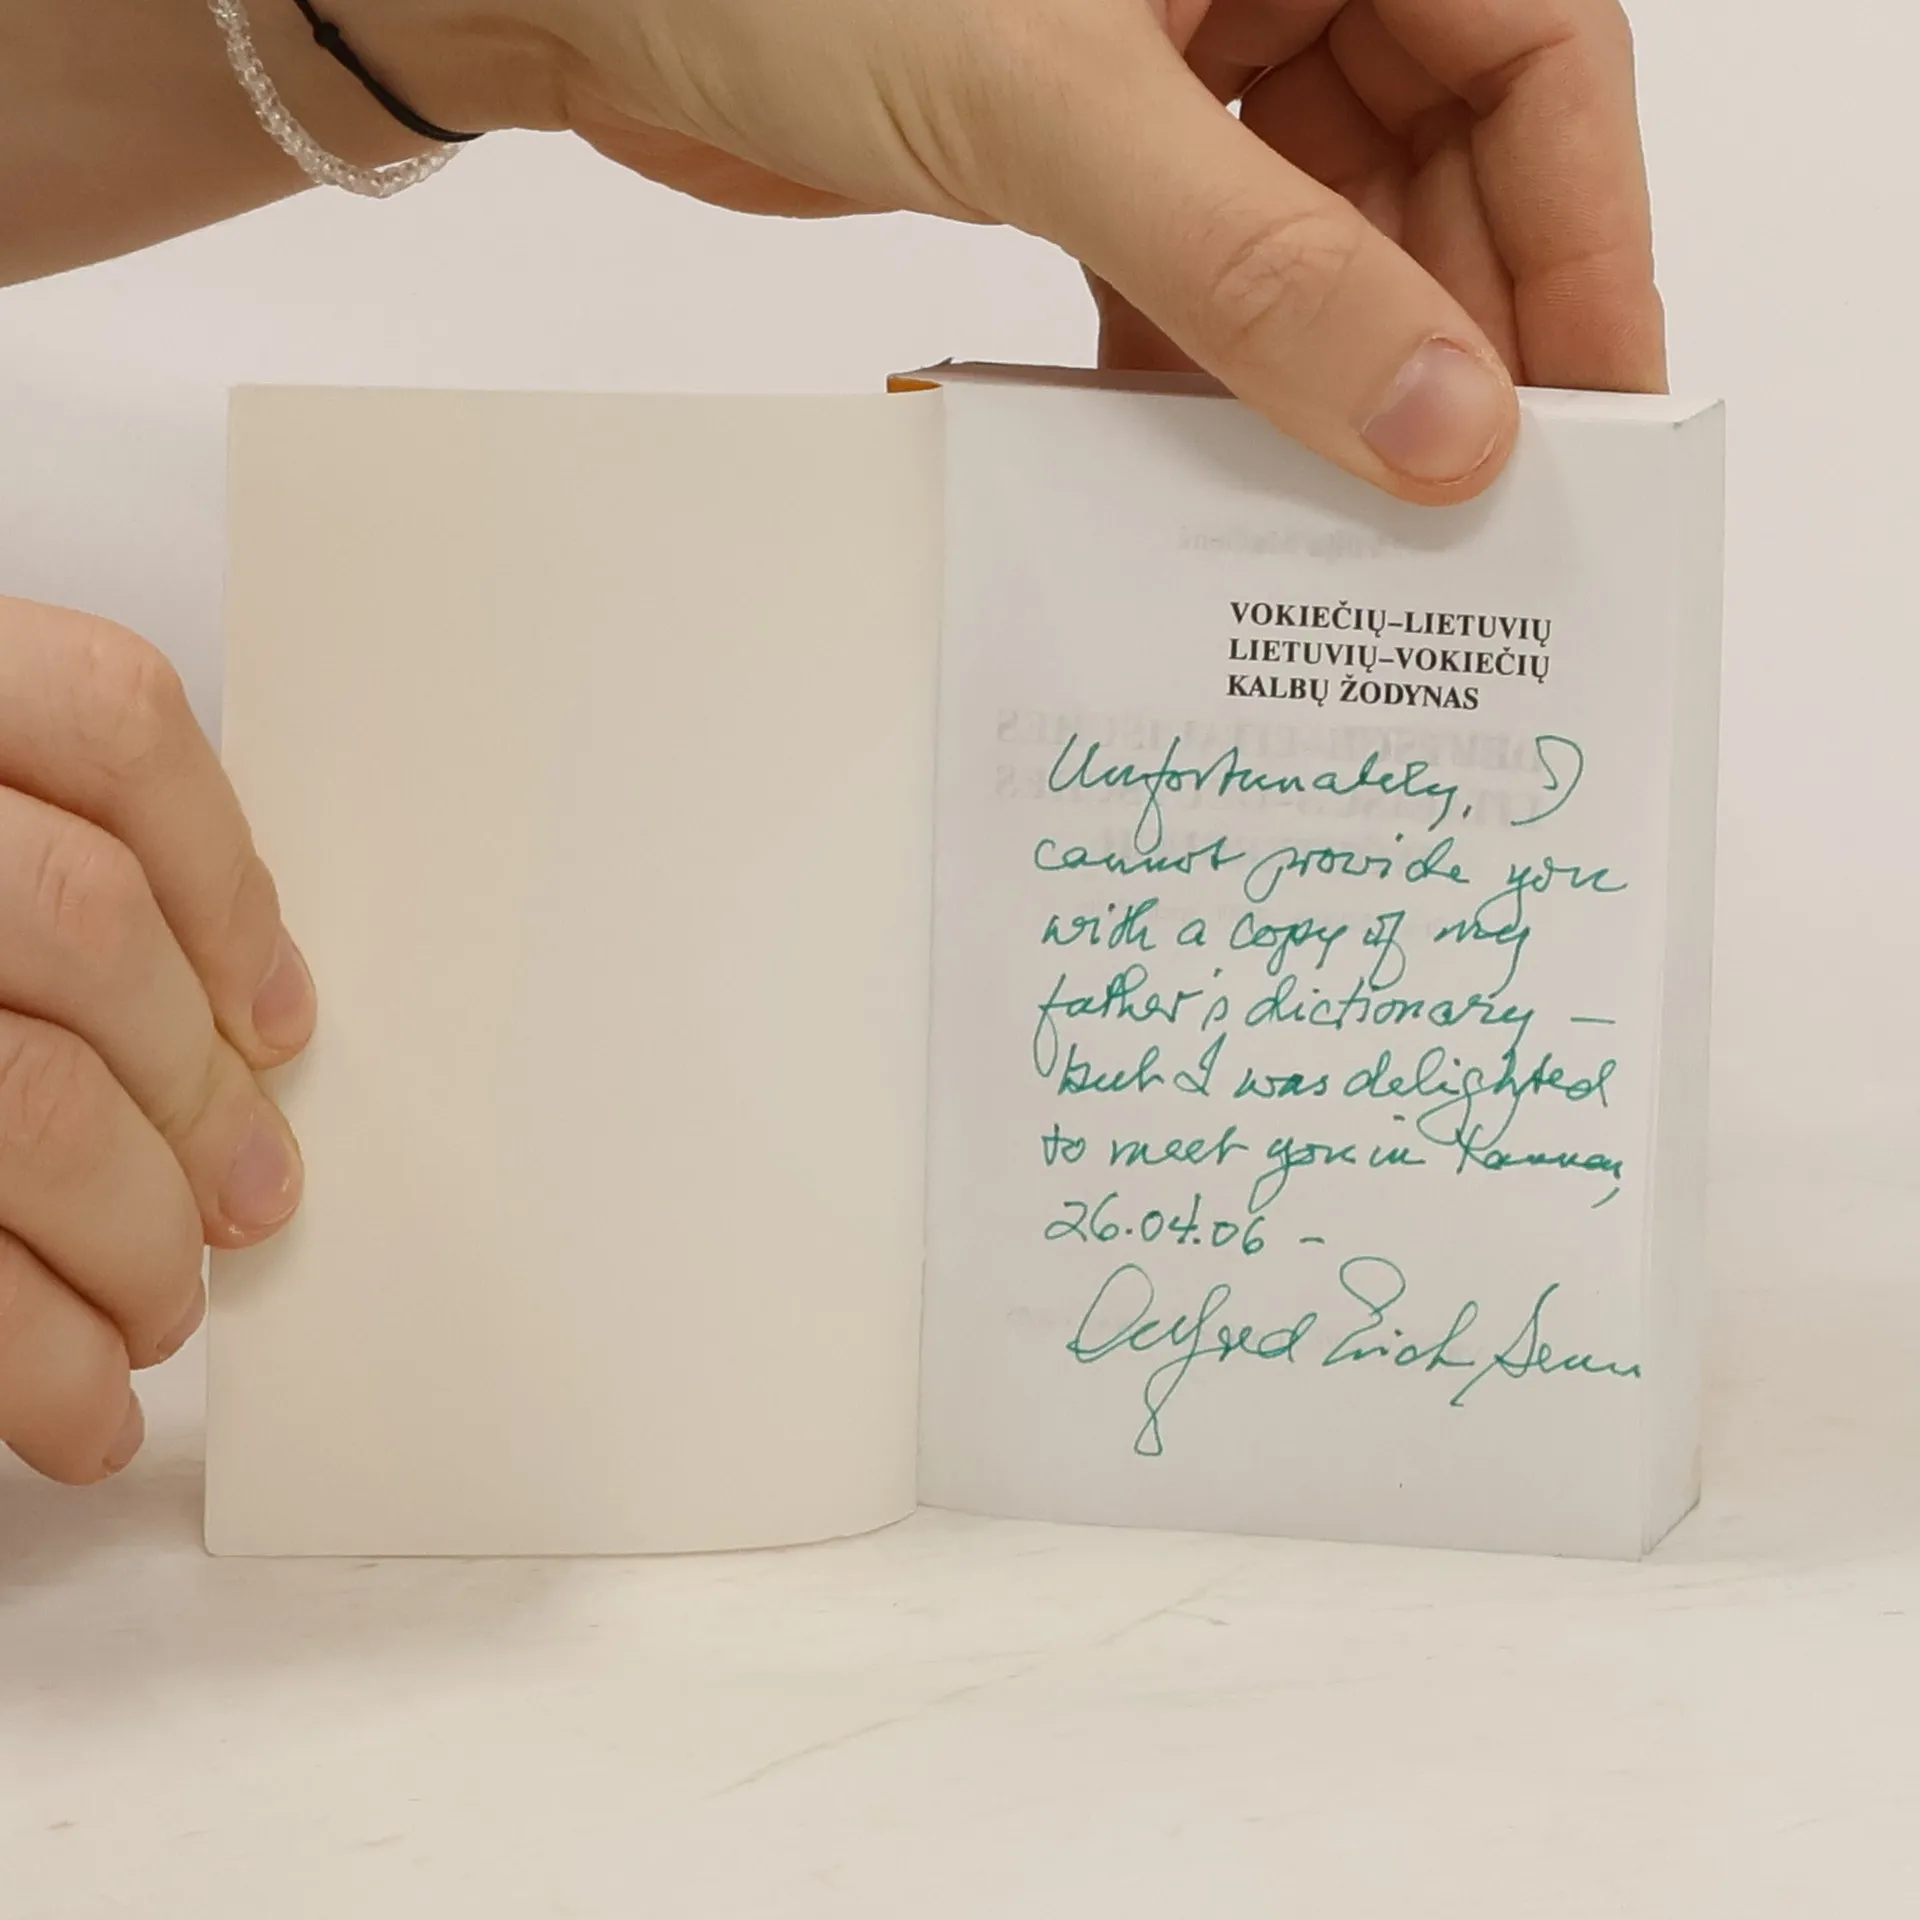 VOKIEČIŲ–LIETUVIŲ
LIETUVIŲ–VOKIEČIŲ
KALBŲ ŽODYNAS
Unfortunately, I
cannot provide you
with a copy of my
father's dictionary —
but I was delighted
to meet you in Kaunas,
26.04.06 –
Alfred Erich Senn